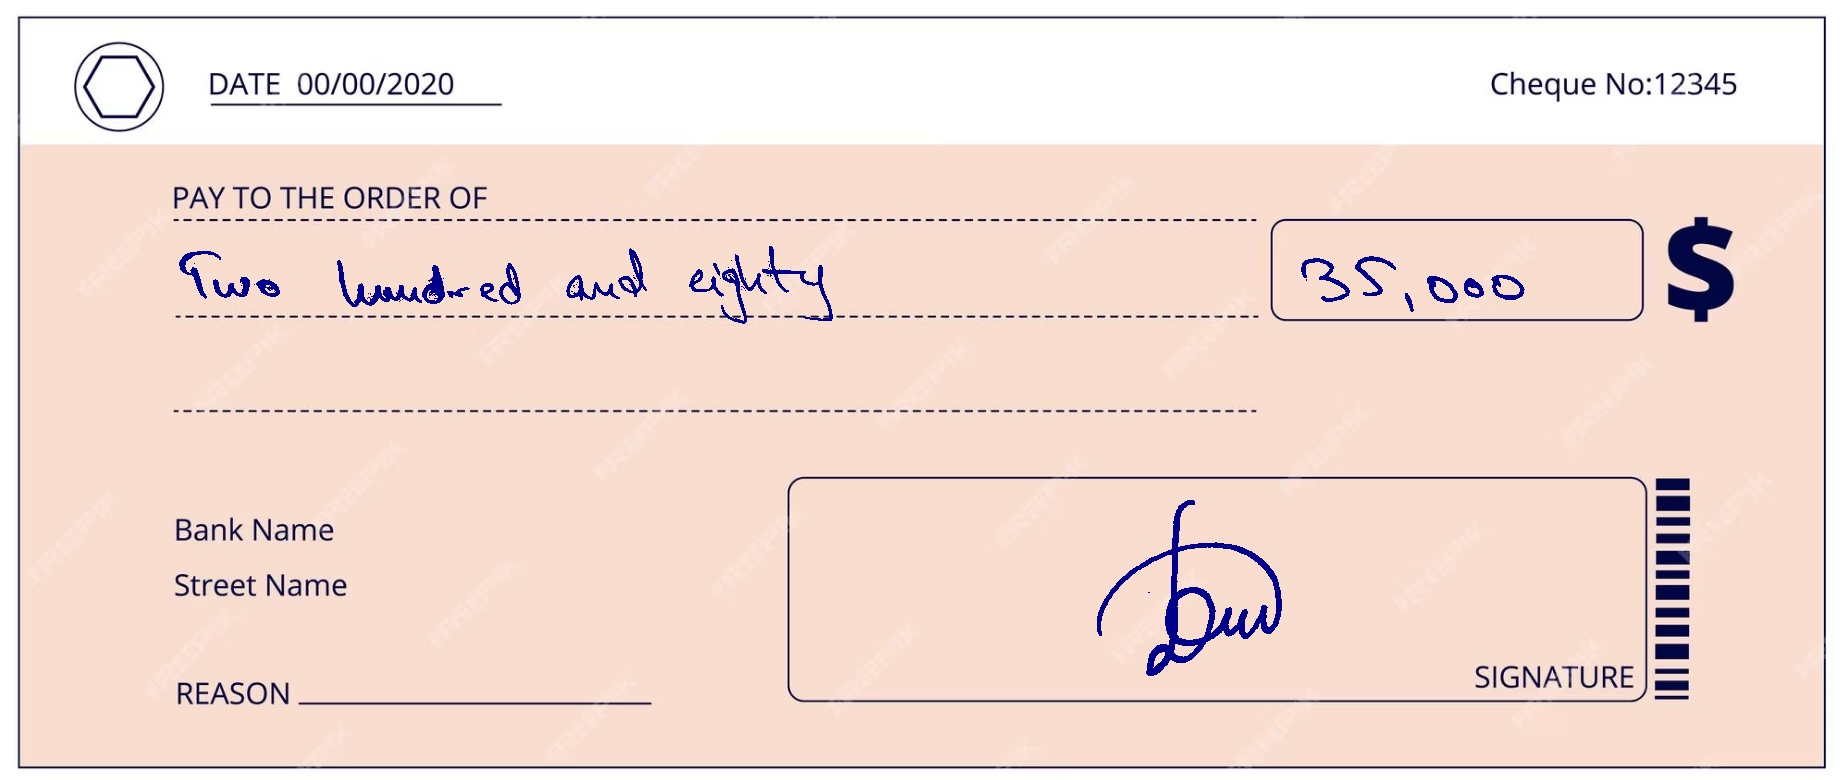 DATE 00/00/2020
Cheque No:12345
PAY TO THE ORDER OF
Two hundred and eighty
35,000
$
Bank Name
Street Name
REASON
SIGNATURE